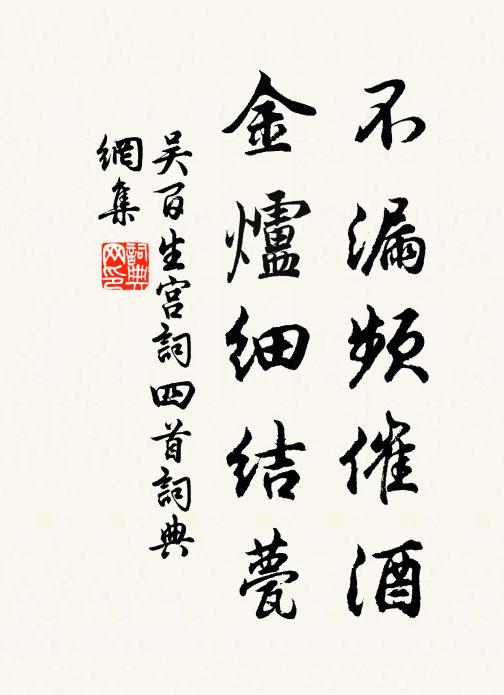 不漏頻催酒
金爐細結甍
吴百生宫詞四首詞典
網集
詞典
网印